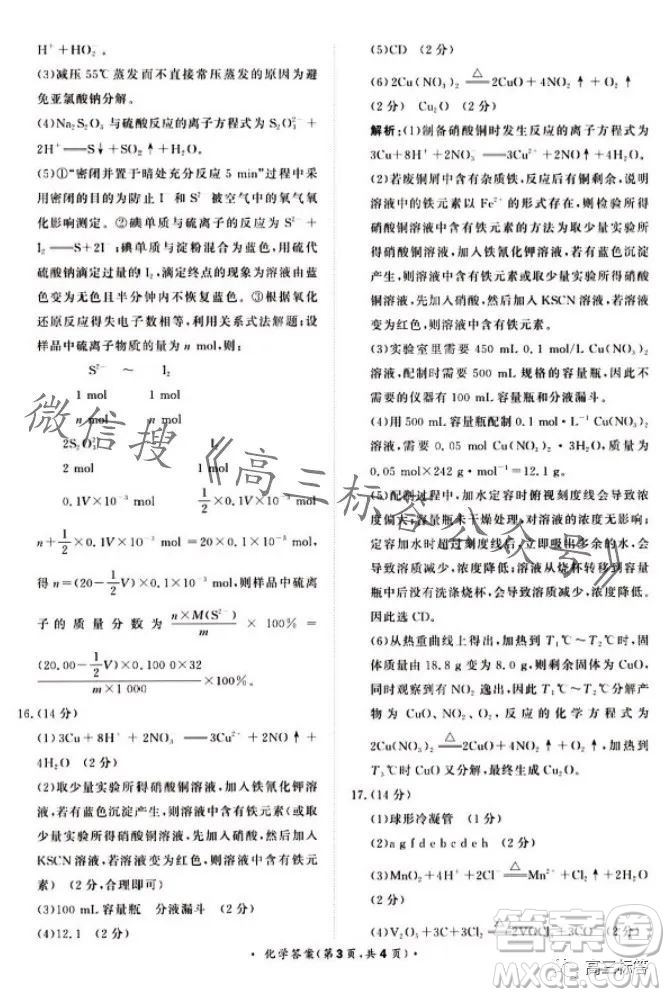 H⁺＋HO₂⁻。
(3)减压 55℃蒸发而不直接常压蒸发的原因是为了避
免亚氯酸钠分解。
(4)Na₂S₂O₃ 与硫酸反应的离子方程式为 S₂O₃²⁻＋
2H⁺══S↓＋SO₂↑＋H₂O。
(5)①“密闭并置于暗处充分反应 5 min”过程中，密
封的目的为防止 I⁻ 和 S²⁻ 被空气中的氧气氧
化影响测定。②碘单质与硫离子反应为 S²⁻＋
I₂══S＋2I⁻;碘单质与淀粉混合为蓝色,用硫代
硫酸钠滴定过量的 I₂,滴定终点的现象为溶液由蓝
色变为无色且半分钟内不恢复蓝色。③根据氧化
还原反应得失电子数相等,利用关系式法解题;设
样品中硫离子物质的量为 n mol,则:
S²⁻ ～ I₂
1 mol 1 mol
n mol n mol
2S₂O₃²⁻ I₂
2 mol 1 mol
0.1V×10⁻³ mol 1/2×0.1V×10⁻³ mol
n＋1/2×0.1V×10⁻³ mol＝20×0.1×10⁻³ mol
得 n＝(20－1/2V)×0.1×10⁻³ mol,则样品中硫离
子的质量分数为 n×M(S²⁻)/m × 100%＝
(20.00－1/2V)×0.1000×32/m×1 000 ×100%。
16.(14 分)
(1)3Cu＋8H⁺＋2NO₃⁻══3Cu²⁺＋2NO↑＋
4H₂O (2 分)
(2)取少量实验所得硝酸铜溶液,加入铁氰化钾溶
液,若有蓝色沉淀产生,则原溶液含有铁元素(或取
少量实验所得硝酸铜溶液,先加入氯水,然后加入
KSCN 溶液,若溶液变为红色,则溶液中含有铁元
素) (2 分,合理即可)
(3)100 mL 容量瓶 分液漏斗 (2 分)
(4)12.1 (2 分)
(5)CD (2 分)
(6)2Cu(NO₃)₂ ≜ 2CuO＋4NO₂↑＋O₂↑
(2 分) Cu₂O (2 分)
解析:(1)制备硝酸铜时发生反应的离子方程式为
3Cu＋8H⁺＋2NO₃⁻══3Cu²⁺＋2NO↑＋4H₂O。
(2)若废铜屑中含有杂质铁,反应后有铜剩余,说明
溶液中的铁元素以 Fe²⁺ 的形式存在,则检验所得
硝酸铜溶液中含有铁元素的方法为取少量实验所
得硝酸铜溶液,加入铁氰化钾溶液,若有蓝色沉淀
产生,则原溶液中含有铁元素或取少量实验所得硝酸
铜溶液,先加入氯水,然后加入 KSCN 溶液,若溶液
变为红色,则溶液中含有铁元素。
(3)实验室里需要 450 mL 0.1 mol/L Cu(NO₃)₂
溶液,配制时需要 500 mL 规格的容量瓶,不需要
的仪器有 100 mL 容量瓶和分液漏斗。
(4)用 500 mL 容量瓶配制 0.1 mol·L⁻¹ Cu(NO₃)₂
溶液,需要 0.05 mol Cu(NO₃)₂·3H₂O,质量为
0.05 mol×242 g·mol⁻¹＝12.1 g。
(5)配制过程中,加水定容时俯视刻度线会导致浓
度偏大;容量瓶未干燥处理,对溶液的浓度无影响;
定容加水时超过刻度线,立即吸出多余的水,会
导致溶液浓度偏低;将溶液从烧杯转移到容量
瓶中后没有洗涤烧杯,会导致溶液浓度偏低。
因此选 CD。
(6)从热重曲线上得出,在 T₁℃～T₂℃时,固
体质量由 18.8 g 变为 8.0 g,则剩余固体为 CuO,
同时观察到有红棕色 NO₂ 逸出,因此 T₁℃～T₂℃分解
产物为 CuO、NO₂、O₂,反应的化学方程式为
2Cu(NO₃)₂ ≜ 2CuO＋4NO₂↑＋O₂↑,加热到
T₃℃时 CuO 又分解,最终生成 Cu₂O。
17.(14 分)
(1)球形冷凝管 (2 分)
(2)a g f d e b c d e h (2 分)
(3)MnO₂＋4H⁺＋2Cl⁻ ≜ Mn²⁺＋Cl₂↑＋2H₂O
(2 分)
(4)V₂O₃＋3Cl₂＋3C ≜ 2VOCl₃＋3CO (2 分)
化学答案(第 3 页,共 4 页)
微信搜《高三标答公众号》
答案圈
MXQE.COM
高三标答